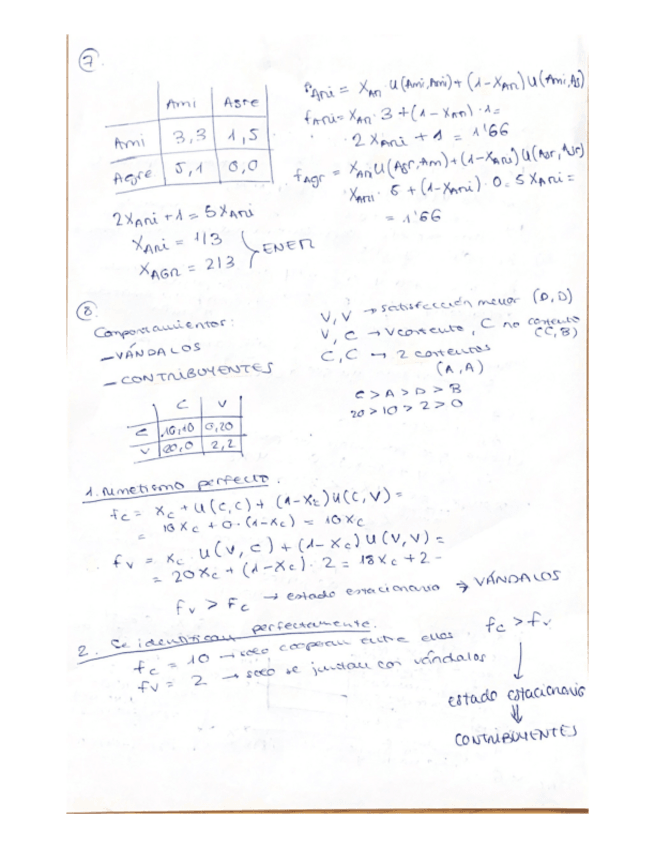 7
Ami Agre
Ami 3,3 1,5
Agre 5,1 0,0
fAmi = XAmi U(Ami,Ami) + (1-XAmi) U(Ami,Ag)
fAmi = XAmi · 3 + (1-XAmi) · 1 =
2XAmi + 1 = 1'66
fAgr = XAmi U(Agr,Am) + (1-XAmi) U(Agr,Agr)
XAmi · 5 + (1-XAmi) · 0 = 5XAmi =
= 1'66
2XAmi + 1 = 5XAmi
XAmi = 1/3
XAGR = 2/3
ENEM
8
Comportamientos:
- VÁNDALOS
- CONTRIBUYENTES
V, V → satisfacción menor (D,D)
V, C → V contento, C no contento
(C,B)
C, C → 2 contentos
(A,A)
C > A > D > B
20 > 10 > 2 > 0
C V
C 10,10 0,20
V 20,0 2,2
1. Mimetismo perfecto.
fc = Xc + U(C,C) + (1-Xc) U(C,V) =
= 10Xc + 0·(1-Xc) = 10Xc
fv = Xc · U(V,C) + (1-Xc) U(V,V) =
= 20Xc + (1-Xc) · 2 = 18Xc + 2
fv > Fc → estado estacionario → VÁNDALOS
2. Se identifican perfectamente.
fc = 10 → solo cooperan entre ellos
fv = 2 → solo se juntan con vándalos
fc > fv
↓
estado estacionario
⇓
CONTRIBUYENTES